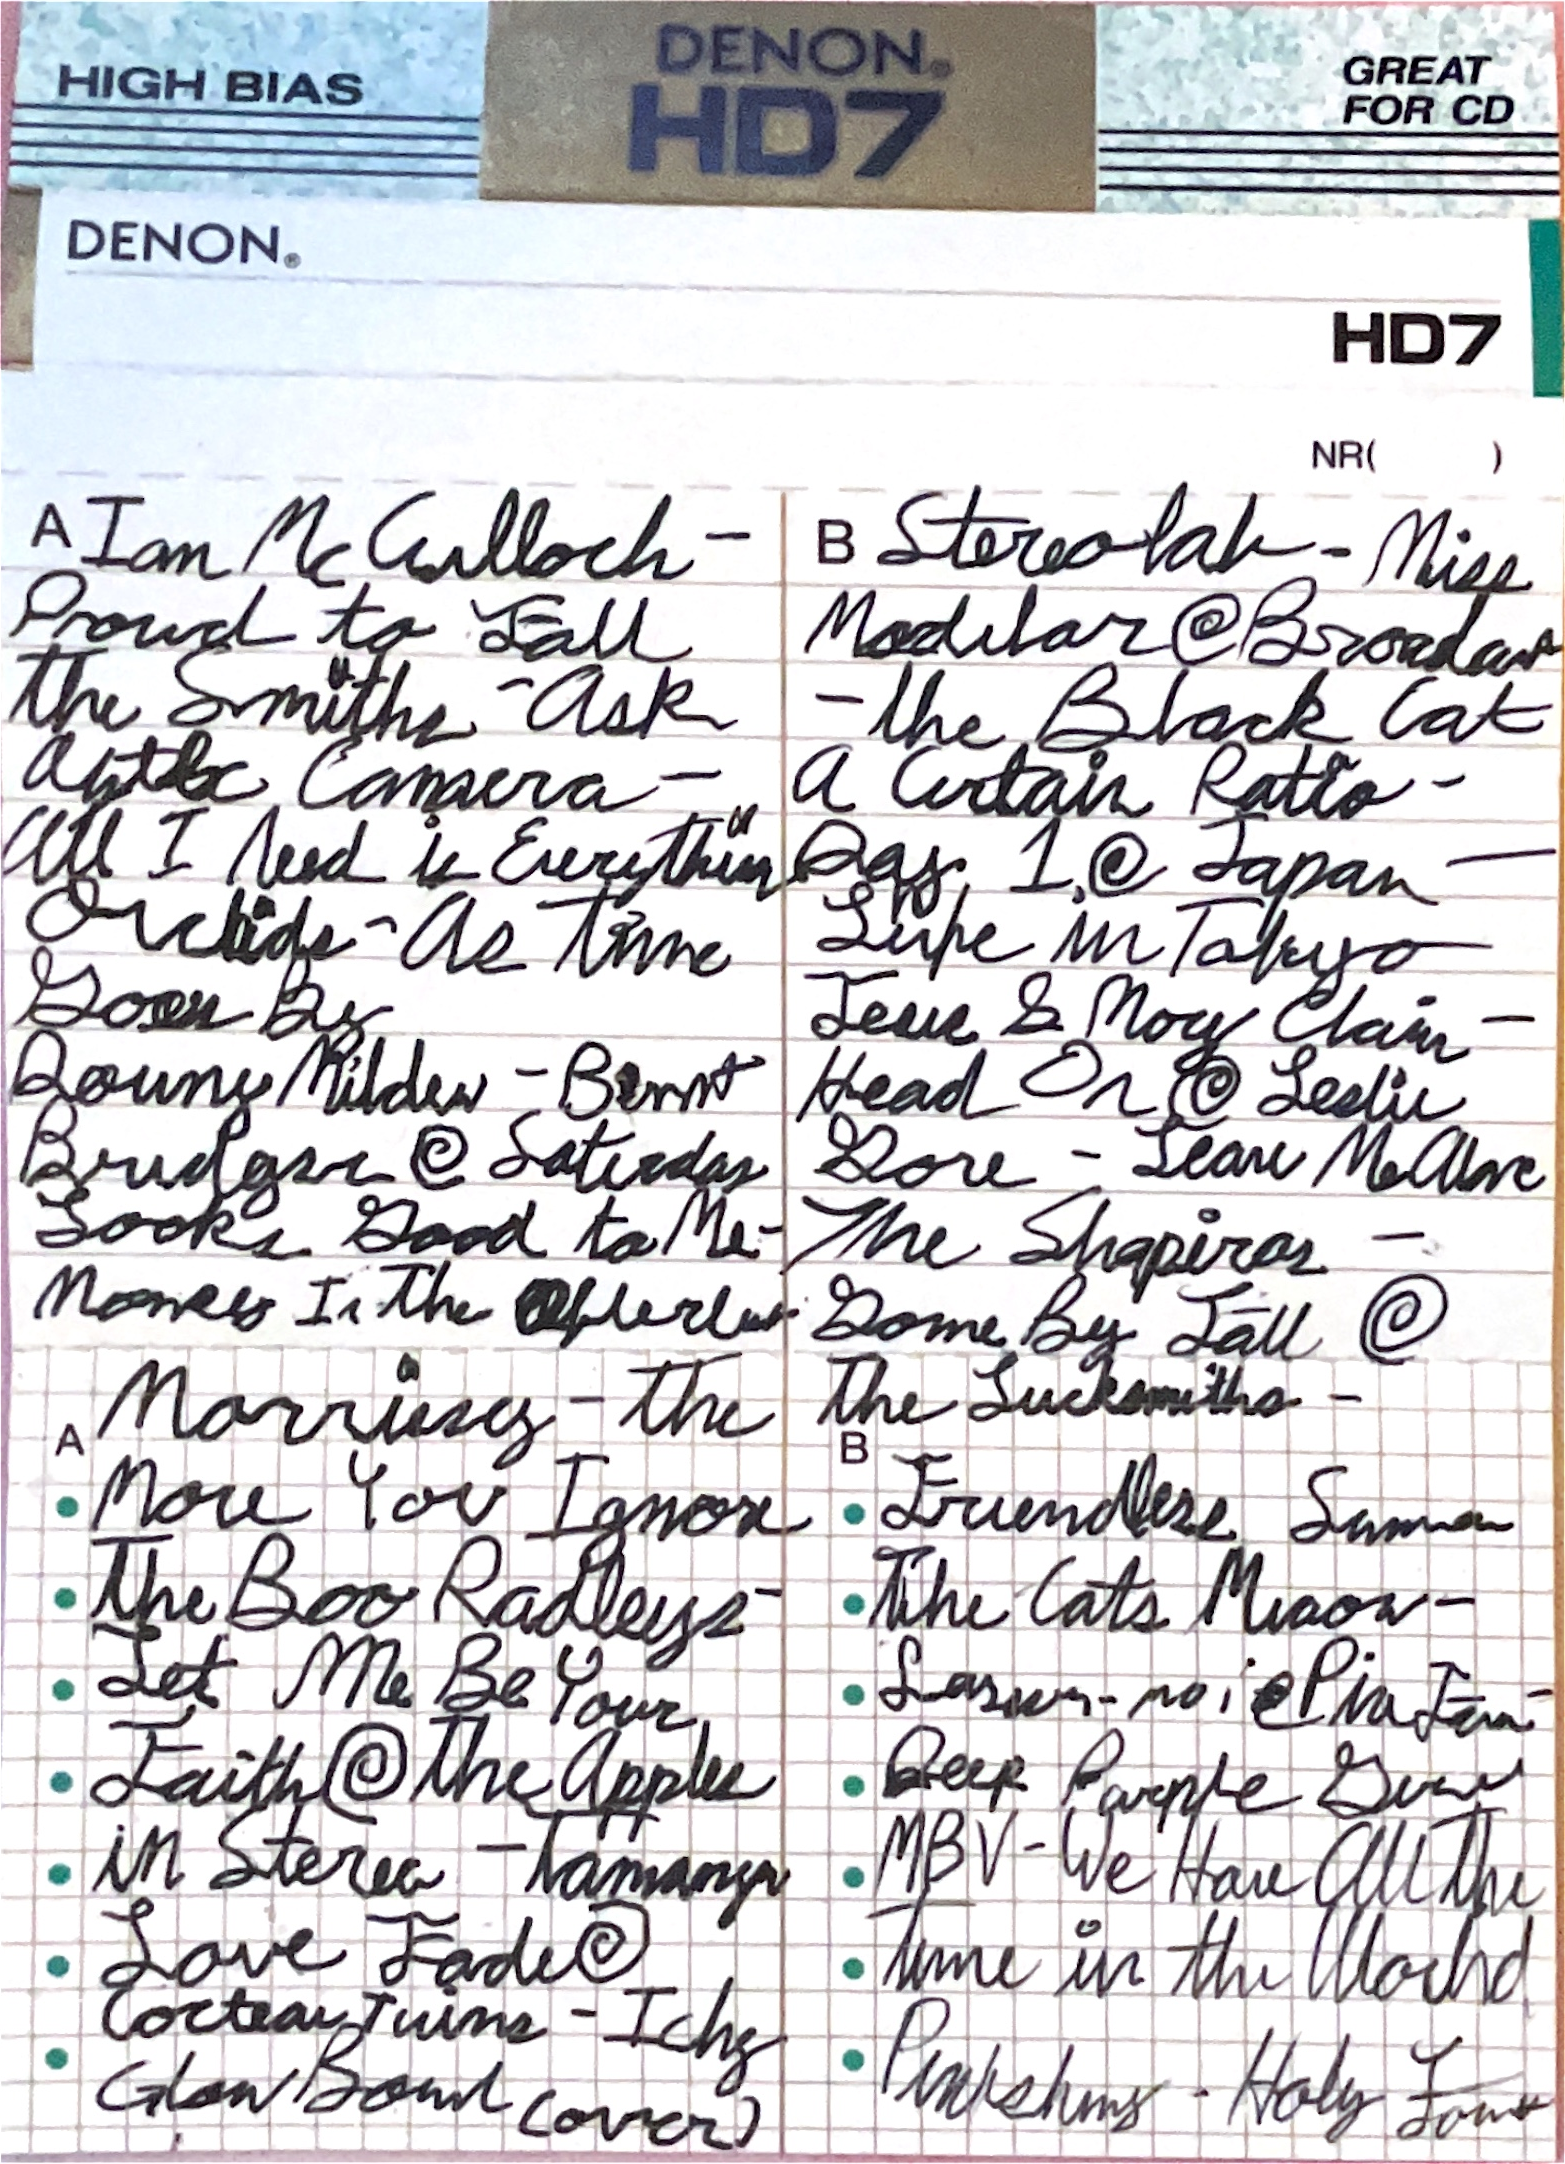 HIGH BIAS
DENON®
HD7
GREAT
FOR CD
DENON®
HD7
NR( )
A Ian McCulloch -
Proud to Fall
The Smiths - Ask
Camera -
All I Need is Everything
Orchids - As Time
Goes By
Downy Mildew -
@ Saturday
Looks Good to Me -
Is The
Morrissey - The
A
More You Ignore
The Boo Radleys -
Let Me Be Your
Faith @ The Apples
in Stereo -
Love Fade @
Cocteau Twins -
Glow Bowl (over)
B Stereolab - Miss
Modular @ Broadcast
- The Black Cat
A Certain Ratio -
Day 1 @ Japan -
Life in Tokyo
Jesus & Mary Chain -
Head On @ Leslie
Gore - Leave Me Alone
The Shapiros -
Gone By Fall @
The Lucksmiths -
B
Friendless Summer
The Cats Miaow -
@
Deep Purple
MBV - We Have All The
Time in the World
Pinkshinyultrablast - Holy